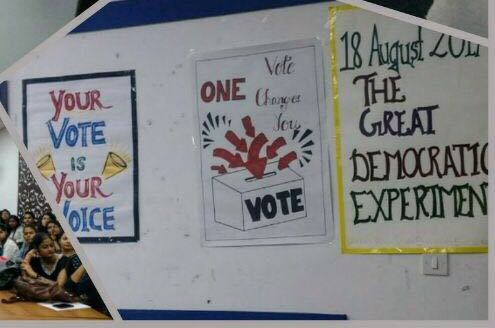 YOUR
VOTE
IS
YOUR
VOICE
ONE
Vote
Changes
You
VOTE
18 August
THE
GREAT
DEMOCRATIC
EXPERIMEN